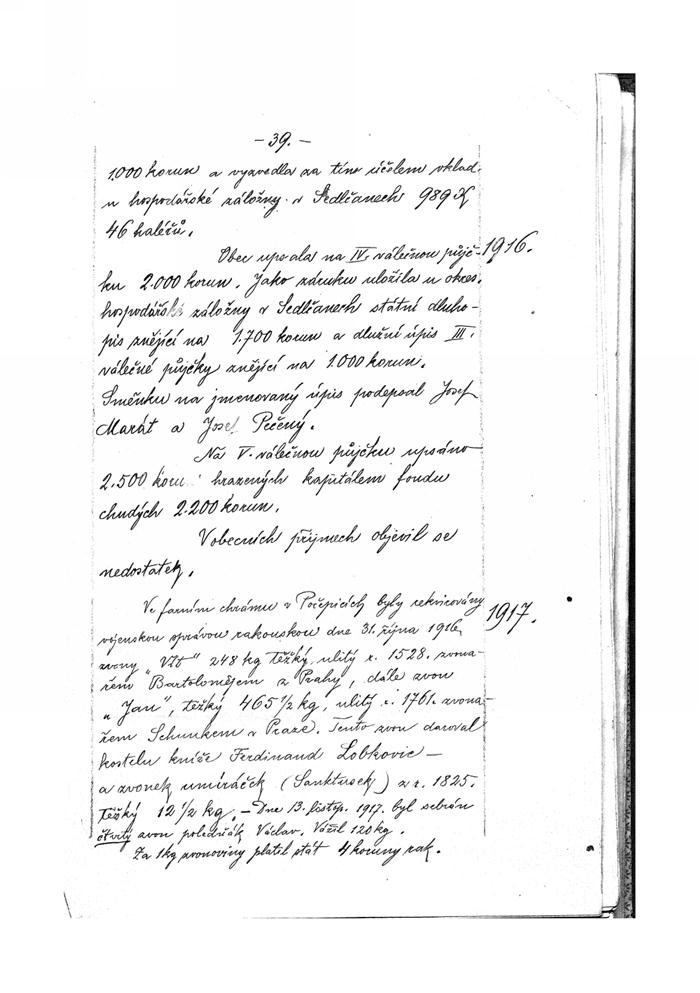 - 39. -
1.000 korun a vyzvedla za tím účelem vklad
u hospodářské záložny v Sedlčanech 989 K
46 haléřů.
Obec upsala na IV. válečnou půjč- 1916.
ku 2.000 korun. Jako záruku uložila u okres.
hospodářské záložny v Sedlčanech státní dluho-
pis znějící na 1.700 korun a dlužní úpis III.
válečné půjčky znějící na 1.000 korun.
Směnku na jmenovaný úpis podepsal Josef
Marát a Josef Pečený.
Na V. válečnou půjčku upsáno
2.500 korun hrazených kapitálem fondu
chudých 2.200 korun.
V obecních příjmech objevil se
nedostatek.
Ve farním chrámu v Počepicích byly rekvirovány 1917.
vojenskou správou rakouskou dne 31. října 1916
zvony "Vít" 248 kg těžký, ulitý r. 1528. zvona-
řem Bartolomějem z Prahy, dále zvon
"Jan", těžký 465 1/2 kg, ulitý r. 1761. zvona-
řem Schunkem v Praze. Tento zvon daroval
kostelu kníže Ferdinand Lobkovic -
a zvonek umíráček (Sanktusek) z r. 1825.
těžký 12 1/2 kg. - Dne 13. listop. 1917. byl sebrán
čtvrtý zvon poledňák Václav. Vážil 120 kg.
Za 1 kg zvonoviny platil stát 4 koruny rak.